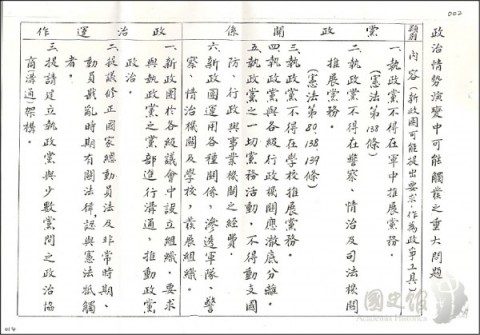 002
政治情勢演變中可能觸發之重大問題
類別 內容(新政團可能提出要求作為政爭工具)
黨政關係
一、執政黨不得在軍中推展黨務。
(憲法第138條)
二、執政黨不得在警察、情治及司法機關
推展黨務。
(憲法第80、138、139條)
三、執政黨不得在學校推展黨務。
四、執政黨與各級行政機關應澈底分離。
五、執政黨之一切黨務活動，不得動支國
防、行政與事業機關之經費。
六、新政團運用各種關係，滲透軍隊、警
察、情治機關及學校，發展組織。
政治運作
一、新政團於各級議會中設立組織，要求
與執政黨之黨部進行溝通，推動政黨
政治。
二、提議修正國家總動員法及非常時期、
動員戡亂時期有關法律，認與憲法抵觸
者。
三、提請建立執政黨與少數黨間之政治協
商(溝通)架構。
國史館
Academia Historica